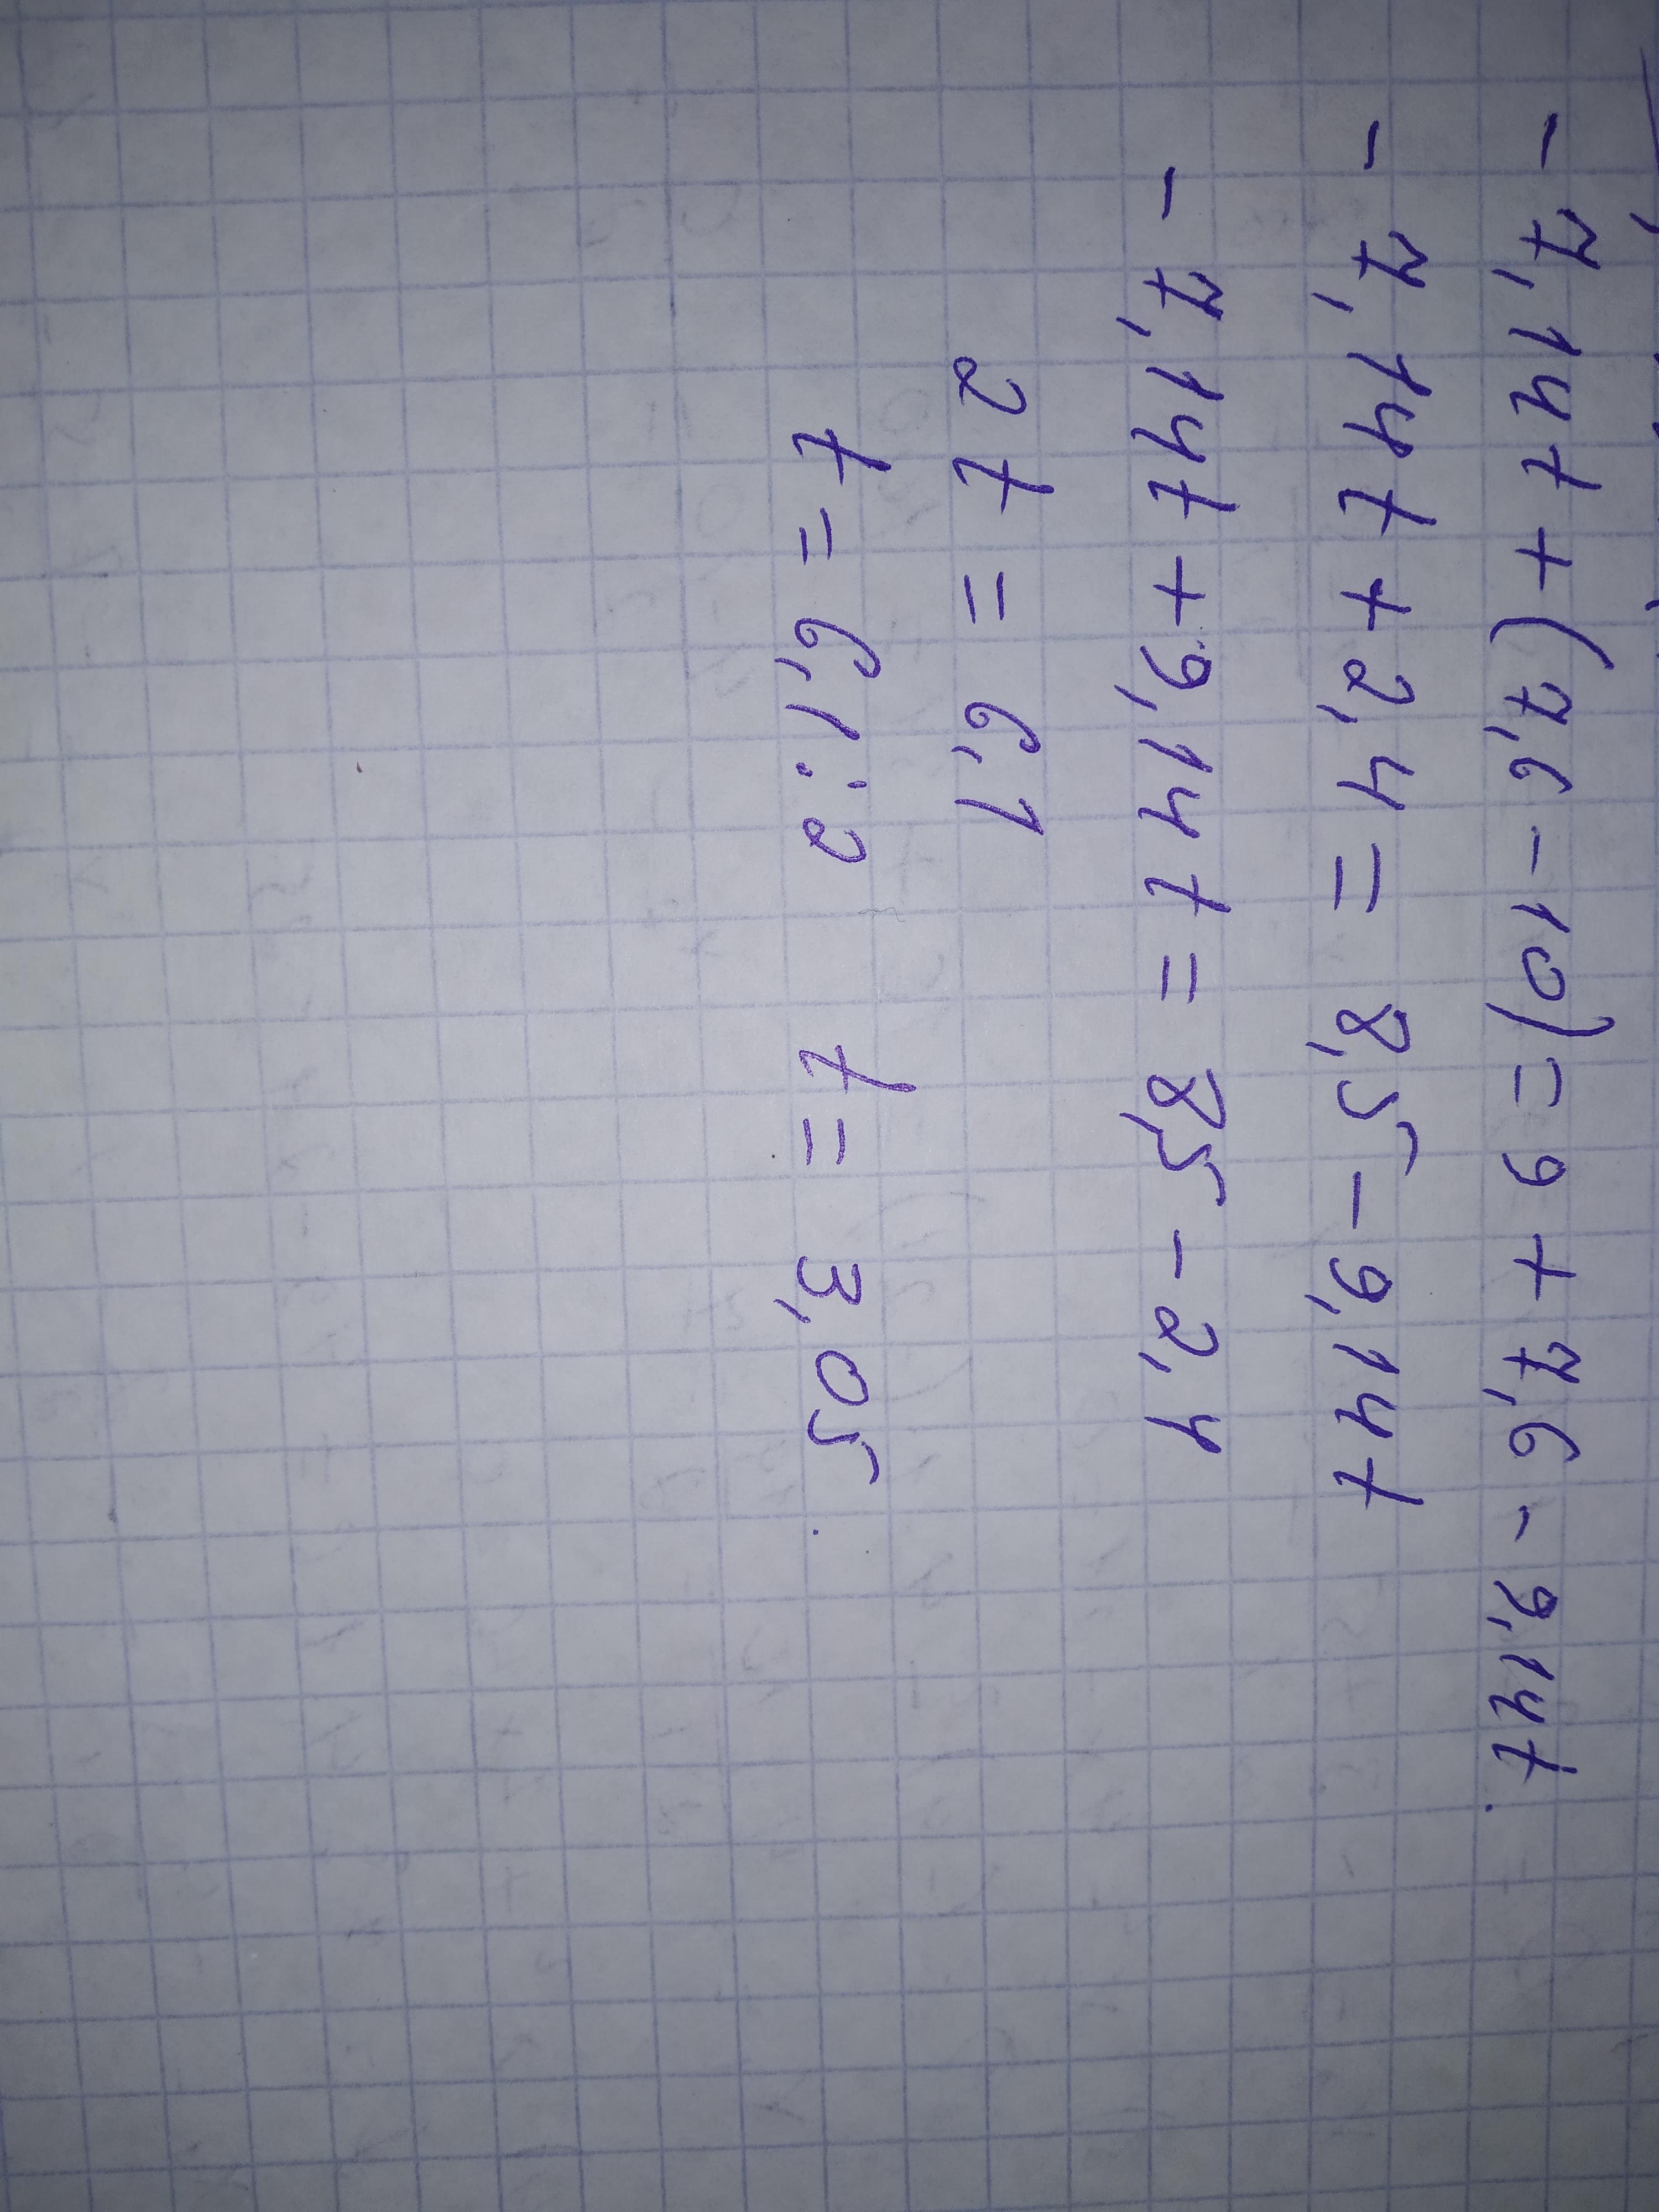 - 7,14t + (7,6 - 10) = 9 + 7,6 - 9,14t
- 7,14t + 2,4 = 8,5 - 9,14t
- 7,14t + 9,14t = 8,5 - 2,4
2t = 6,1
t = 6,1 : 2 t = 3,05